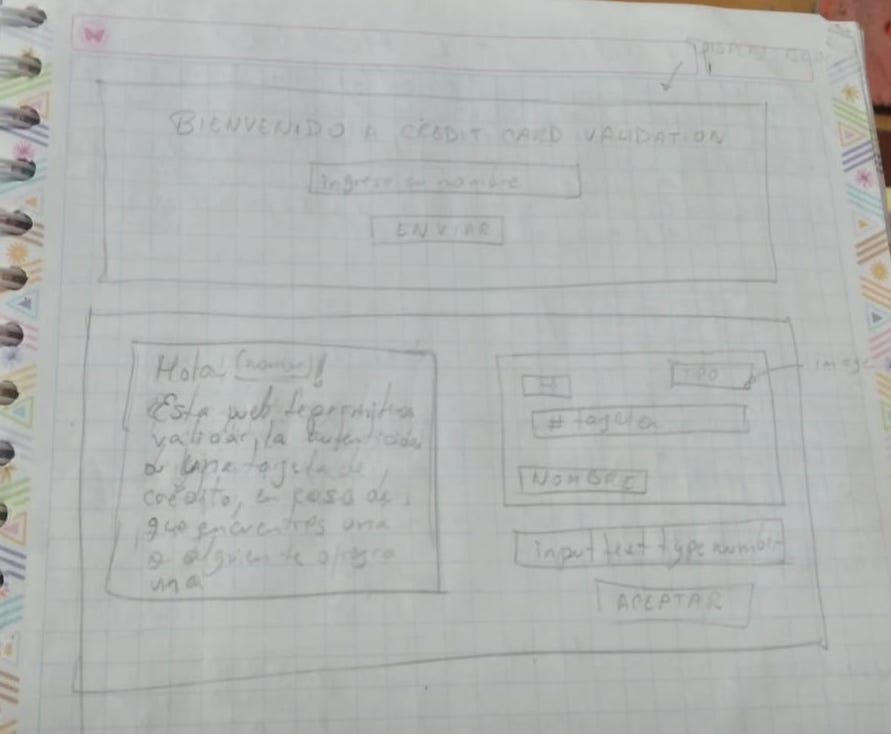 BIENVENIDO A CREDIT CARD VALIDATION
Ingrese su nombre
ENVIAR
Hola (nombre)!
Esta web te permitira
validar, la autenticidad
de una tarjeta de
credito, en caso de
que encuentres una
o alguien te ofresca
una
TIPO
image
# tarjeta
NOMBRE
input text type number
ACEPTAR